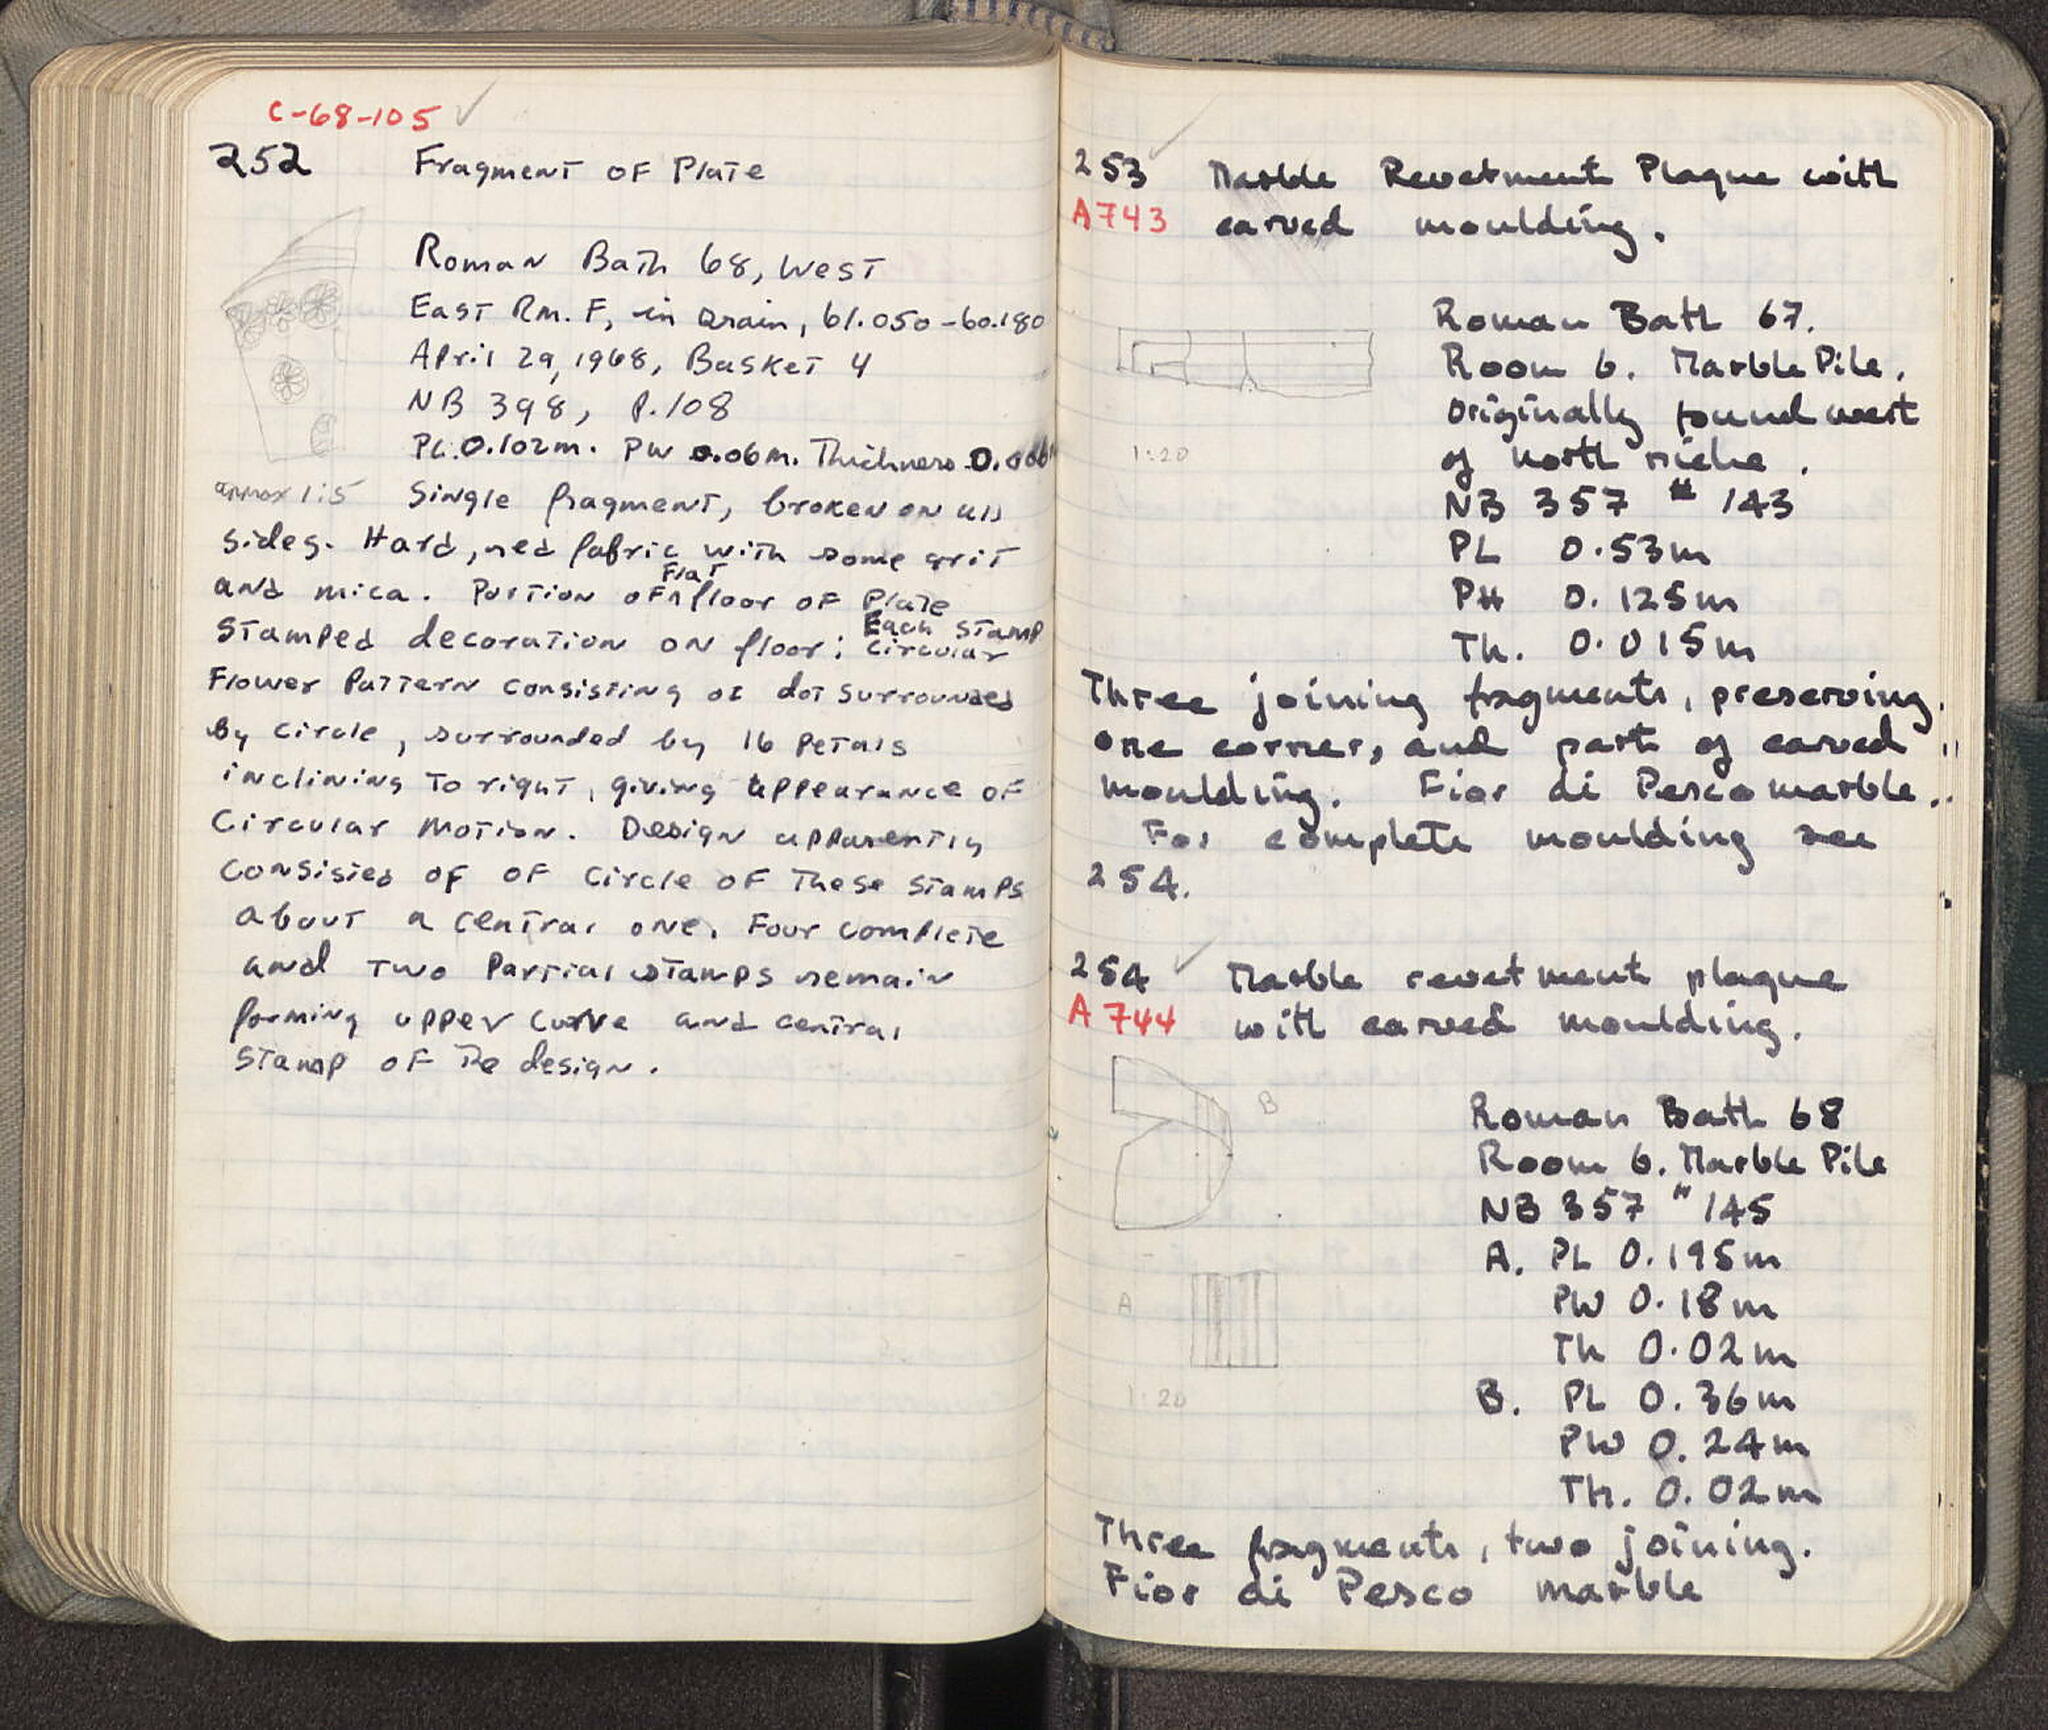 C-68-105 ✓
252 Fragment of Plate
Roman Bath 68, West
East Rm. F, in Drain, 61.050-60.180
April 29, 1968, Basket 4
NB 398, P.108
PL. 0.102m. PW 0.06m. Thickness 0.006m
approx 1:5 Single fragment, broken on all
sides. Hard, red fabric with some grit
and mica. Portion of ^Flat floor of Plate
Stamped decoration on floor; Each Stamp circular
Flower Pattern consisting of dot surrounded
by circle, surrounded by 16 Petals
inclining to right, giving appearance of
Circular Motion. Design apparently
consisted of of circle of these stamps
about a central one. Four complete
and two Partial stamps remain
forming upper curve and central
stamp of the design.
253 ✓ Marble Revetment Plaque with
A743 carved moulding.
Roman Bath 67.
Room 6. Marble Pile.
Originally found west
of north niche.
1:20
NB 357 # 143
PL 0.53m
PH 0.125m
Th. 0.015m
Three joining fragments, preserving
one corner, and part of carved
moulding. Fior di Pesco marble.
For complete moulding see
254.
254 ✓ Marble revetment plaque
A744 with carved moulding.
B
Roman Bath 68
Room 6. Marble Pile
NB 357 # 145
A. PL 0.195m
A
PW 0.18m
Th 0.02m
1:20
B. PL 0.36m
PW 0.24m
Th. 0.02m
Three fragments, two joining.
Fior di Pesco marble